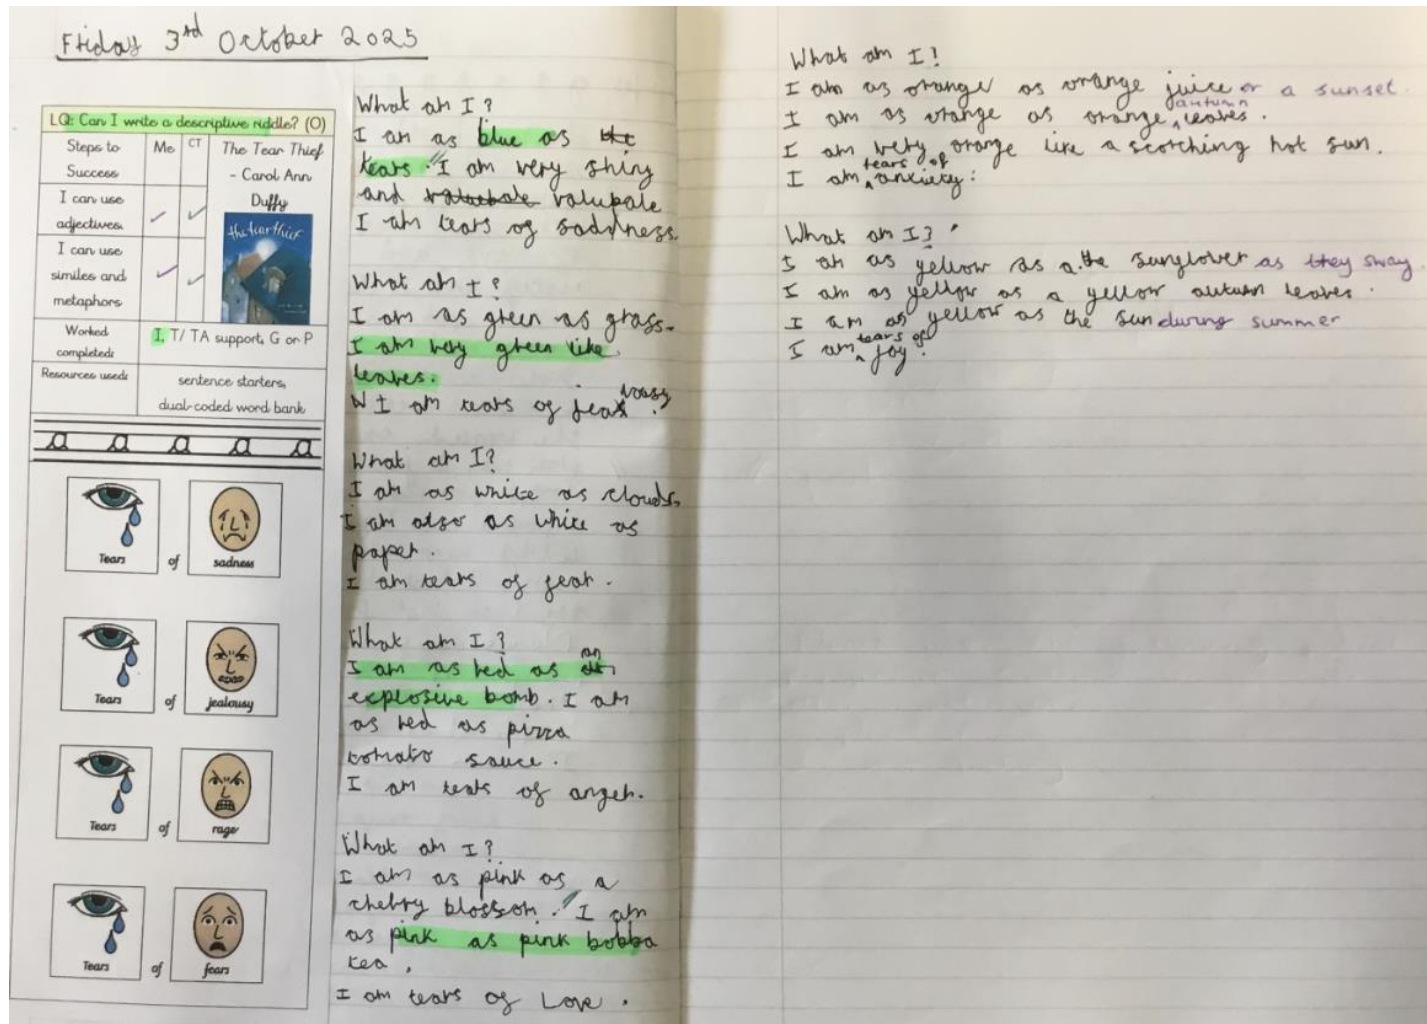 Friday 3rd October 2025
LQ: Can I write a descriptive riddle? (O)
Steps to Success
Me
CT
The Tear Thief - Carol Ann Duffy
I can use adjectives.
the tear thief
I can use similes and metaphors
Worked completed:
I, T/ TA support, G or P
Resources used:
sentence starters,
dual-coded word bank
a a a a a
Tears of sadness
Tears of jealousy
Tears of rage
Tears of fears
What am I?
I am as blue as the
tears. I am very shiny
and valuable valupale
I am tears of saddness.
What am I?
I am as green as grass.
I am very green like
leaves.
W I am tears of jealousy.
What am I?
I am as white as clouds.
I am also as white as
paper.
I am tears of fear.
What am I?
I am as red as an
explosive bomb. I am
as red as pizza
tomato sauce.
I am tears of anger.
What am I?
I am as pink as a
cherry blossom. I am
as pink as pink bobba
tea.
I am tears of Love.
What am I?
I am as orange as orange juice or a sunset.
I am as orange as orange autumn leaves.
I am very orange like a scorching hot sun.
I am tears of anxiety.
What am I?
I am as yellow as a the sunflower as they sway.
I am as yellow as a yellow autumn leaves.
I am as yellow as the sun during summer
I am tears of joy.